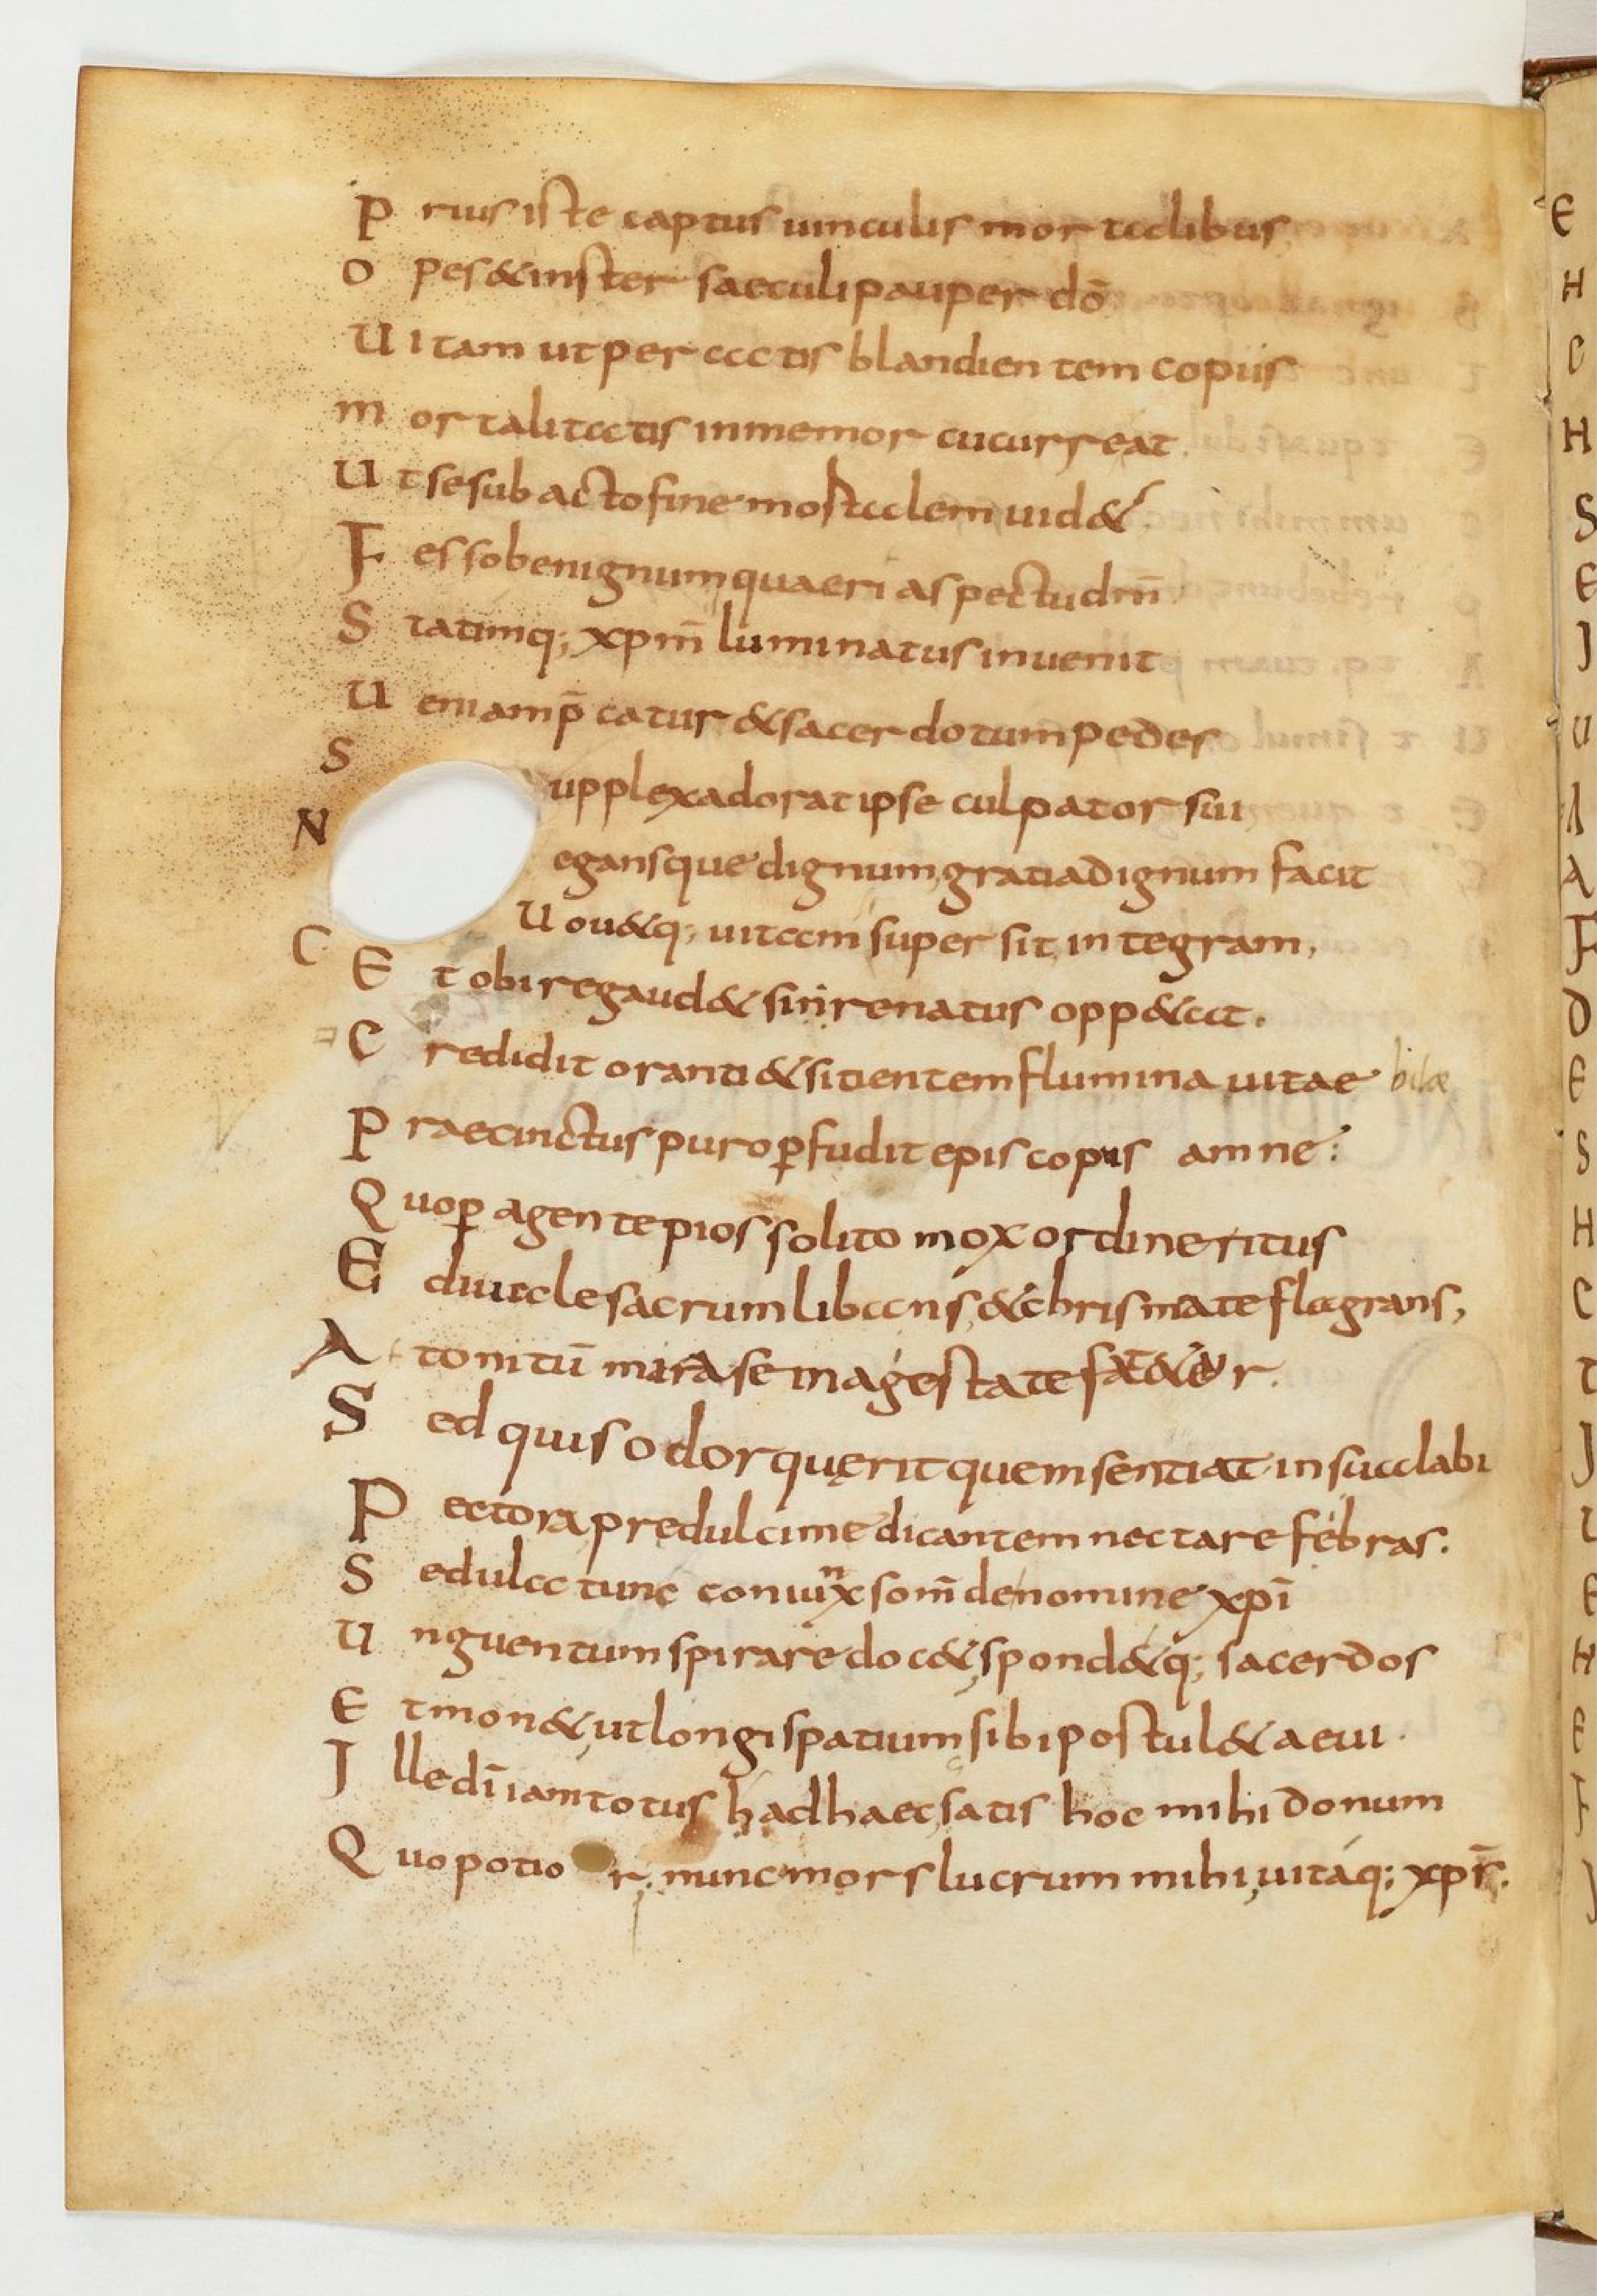 P rius iste captus uinculis mortalibus
O pes & inster saeculi pauper dō
U itam ut peractis blandientem copiis
M ortalitatis inmemor cucurreat.
U t se sub acto fine mostalem uid&.
F esso benignum quaeri aspectu dnī
S tatimq; xpm̄ luminatus inuenit
U eniam p̄catur & sacerdotum pedes
S upplex adorat ipse culpator sui,
N egansque dignum, gratia dignum facit
C U ou&q; uitam super sit, integram,
E t obire gaud& sin renatus opp&at.
C redidit oranti & sitientem flumina uitae bilæ
P raecinctus puro ꝑfudit episcopus amne:
Q uo ꝑagente pios solito mox ordine ritus
E diuale sacrum libans, & chrismate flagrans,
A tonitū mira se magestate fat&er.
S ed quis odor quęrit quem sentiat in sua labi
P ectora predulci medicantem nectare febras.
S edula tunc coniunx som̄ de nomine xpī
U nguentum spirare doc&, spond&q; sacerdos
E t mon&, ut longi spatium sibi postul& aeui.
I lle dī iam totus h ad haec, satis hoc mihi donum
Q uo potior. nunc mors lucrum mihi, uitáq; xpīs.
E
H
C
H
S
E
J
U
A
A
F
D
E
S
H
C
T
J
U
E
H
E
F
J